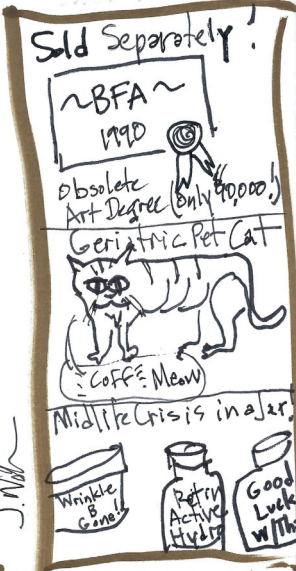 Sold Separately!
~BFA~
1990
Obsolete
Art Degree (only 90,000!)
Geriatric Pet Cat
=Coff= Meow
Midlife Crisis in a Jar
Wrinkle
B
Gone!!
Retin
Active
Hydro
Good
Luck
W/Th